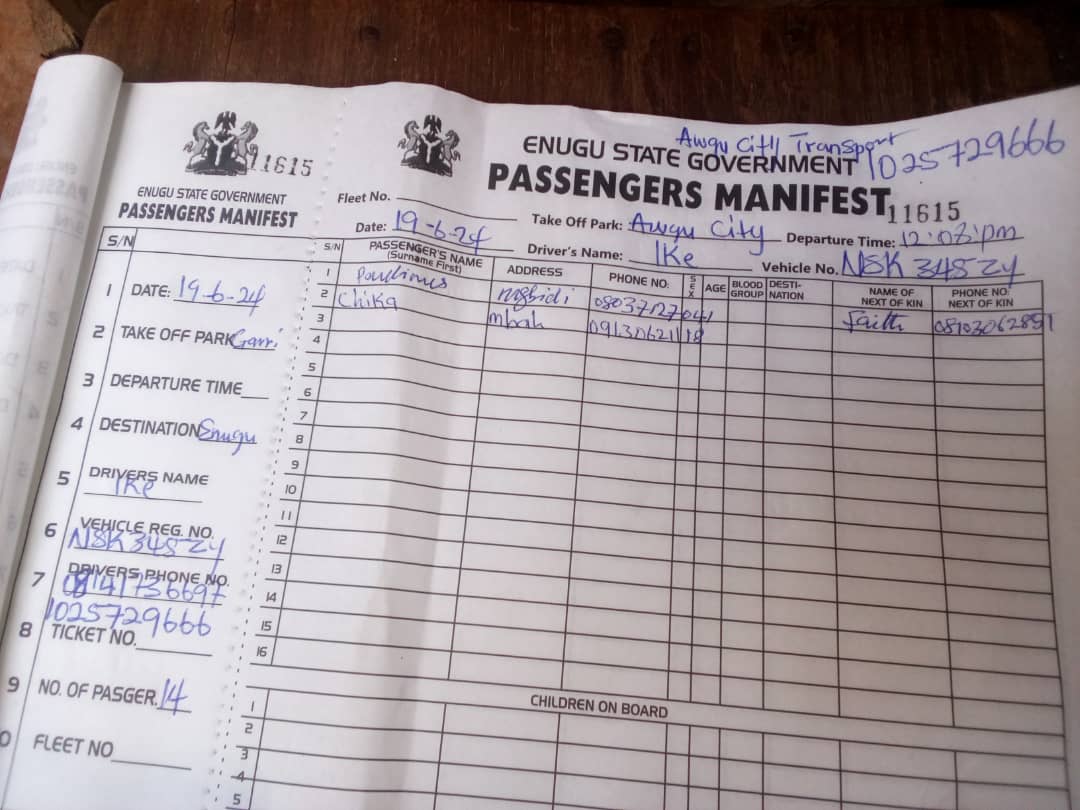 11615
ENUGU STATE GOVERNMENT
PASSENGERS MANIFEST
S/N
1 DATE: 19-6-24
2 TAKE OFF PARK Garri
3 DEPARTURE TIME
4 DESTINATION Enugu
5 DRIVERS NAME
Ike
6 VEHICLE REG. NO.
NSK 348 ZY
7 DRIVERS PHONE NO.
08141736697
1025729666
8 TICKET NO.
9 NO. OF PASGER. 14
0 FLEET NO
Awgu City Transport
ENUGU STATE GOVERNMENT 1025729666
PASSENGERS MANIFEST 11615
Fleet No.
Date: 19-6-24 Take Off Park: Awgu City Departure Time: 12:08:pm
Driver's Name: Ike Vehicle No. NSK 348 ZY
S/N PASSENGER'S NAME (Surname First) ADDRESS PHONE NO: SEX AGE BLOOD GROUP DESTI-NATION NAME OF NEXT OF KIN PHONE NO: NEXT OF KIN
1 Paulinus mgbidi 08037127041 Faith
2 Chika mbah 09130621118
3
4
5
6
7
8
9
10
11
12
13
14
15
16
CHILDREN ON BOARD
1
2
3
4
5